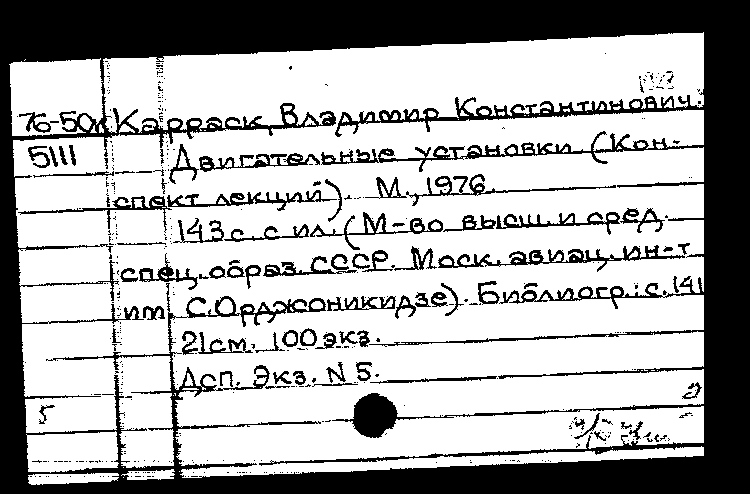 76-50к Карраск, Владимир Константинович.
5111 Двигательные установки. (Кон-
спект лекций). М., 1976.
143 с. с ил. (М-во высш. и сред.
спец. образ. СССР. Моск. авиац. ин-т
им. С. Орджоникидзе). Библиогр.: с. 141
21 см. 100 экз.
Дсп. Экз. N 5.
5